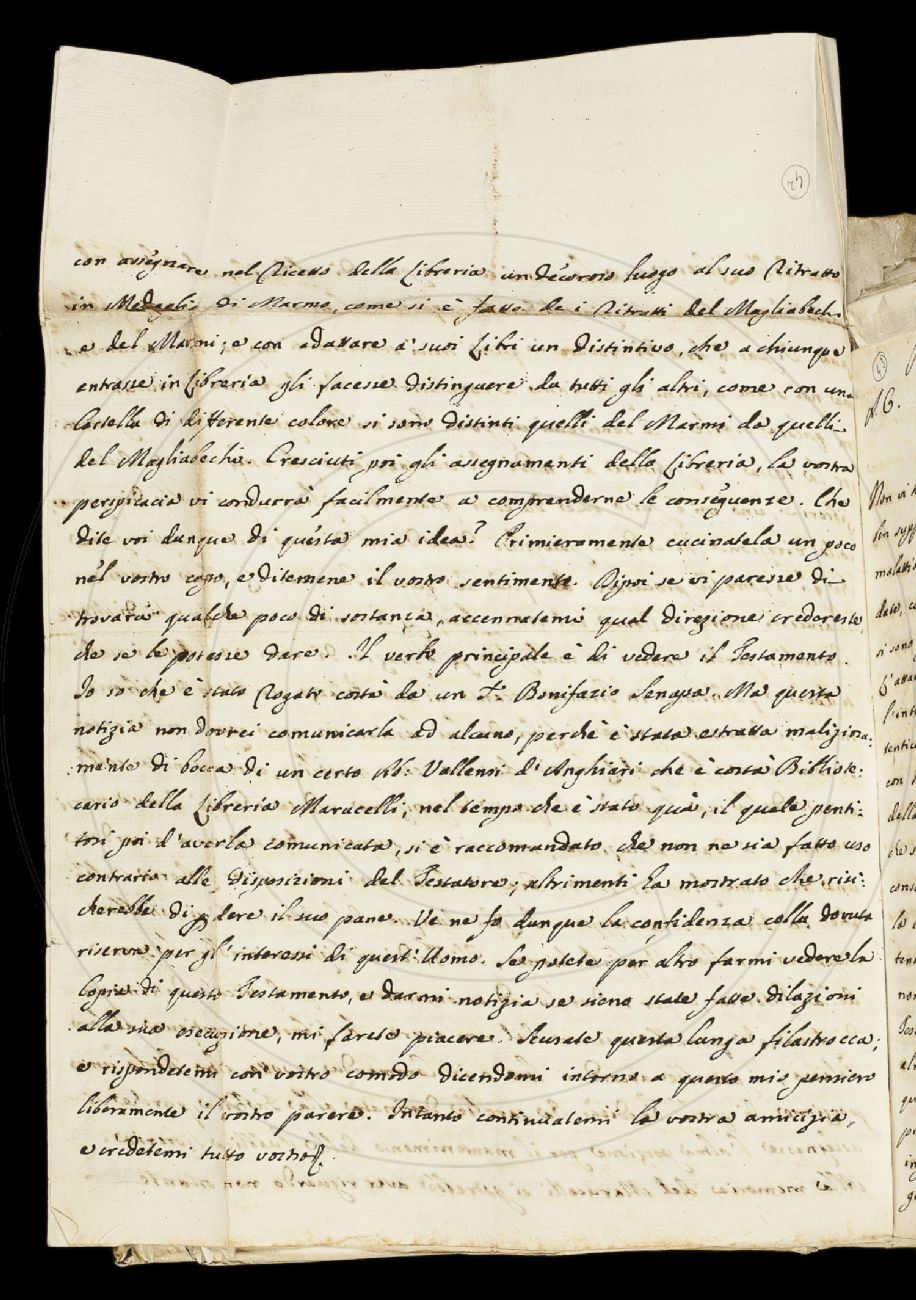 42
con assegnare nel Ricetto della Libreria un decoroso luogo al suo Ritratto
in Medaglia di Marmo, come si è fatto de i Ritratti del Magliabechi
e del Marmi; e con adattare a' suoi Libri un distintivo, che a chiunque
entrasse in Libreria gli facesse distinguere da tutti gli altri, come con una
Cartella di differente colore si sono distinti quelli del Marmi da quelli
del Magliabechi. Cresciuti poi gli assegnamenti della Libreria, la vostra
perspicacia vi condurrà facilmente a comprenderne le conseguenze. Che
dite voi dunque di questa mia idea? Primieramente cucinatela un poco
nel vostro capo, e ditemene il vostro sentimento. Dipoi se vi paresse di
trovarci qualche poco di sostanza, accennatemi qual direzione credereste
che se le potesse dare. Il verbo principale è di vedere il Testamento.
Io so che è stato Rogato costà da un Bonifazio Senapa. Ma questa
notizia non dovrei comunicarla ad alcuno, perchè è stata estratta maliziosa:
mente di bocca di un certo Ab: Vallensi d'Anghiari che è costà Bibliote:
cario della Libreria Marucelli, nel tempo che è stato quà, il quale penti:
tosi poi d'averla comunicata, si è raccomandato che non ne sia fatto uso
contrario alle disposizioni del Testatore; altrimenti ha mostrato che risi:
cherebbe di pdere il suo pane. Ve ne fo dunque la confidenza colla dovuta
riserva per gl'interessi di quest'Uomo. Se potete per altro farmi vedere la
Copia di questo Testamento, e darmi notizia se sieno state fatte dilazioni
alla sua esecuzione, mi farete piacere. Scusate questa lunga filastrocca;
e rispondetemi con vostro comodo dicendomi intorno a questo mio pensiero
liberamente il vostro parere. Intanto continuatemi la vostra amicizia,
e credetemi tutto vostro
43
A. C.
Non vi